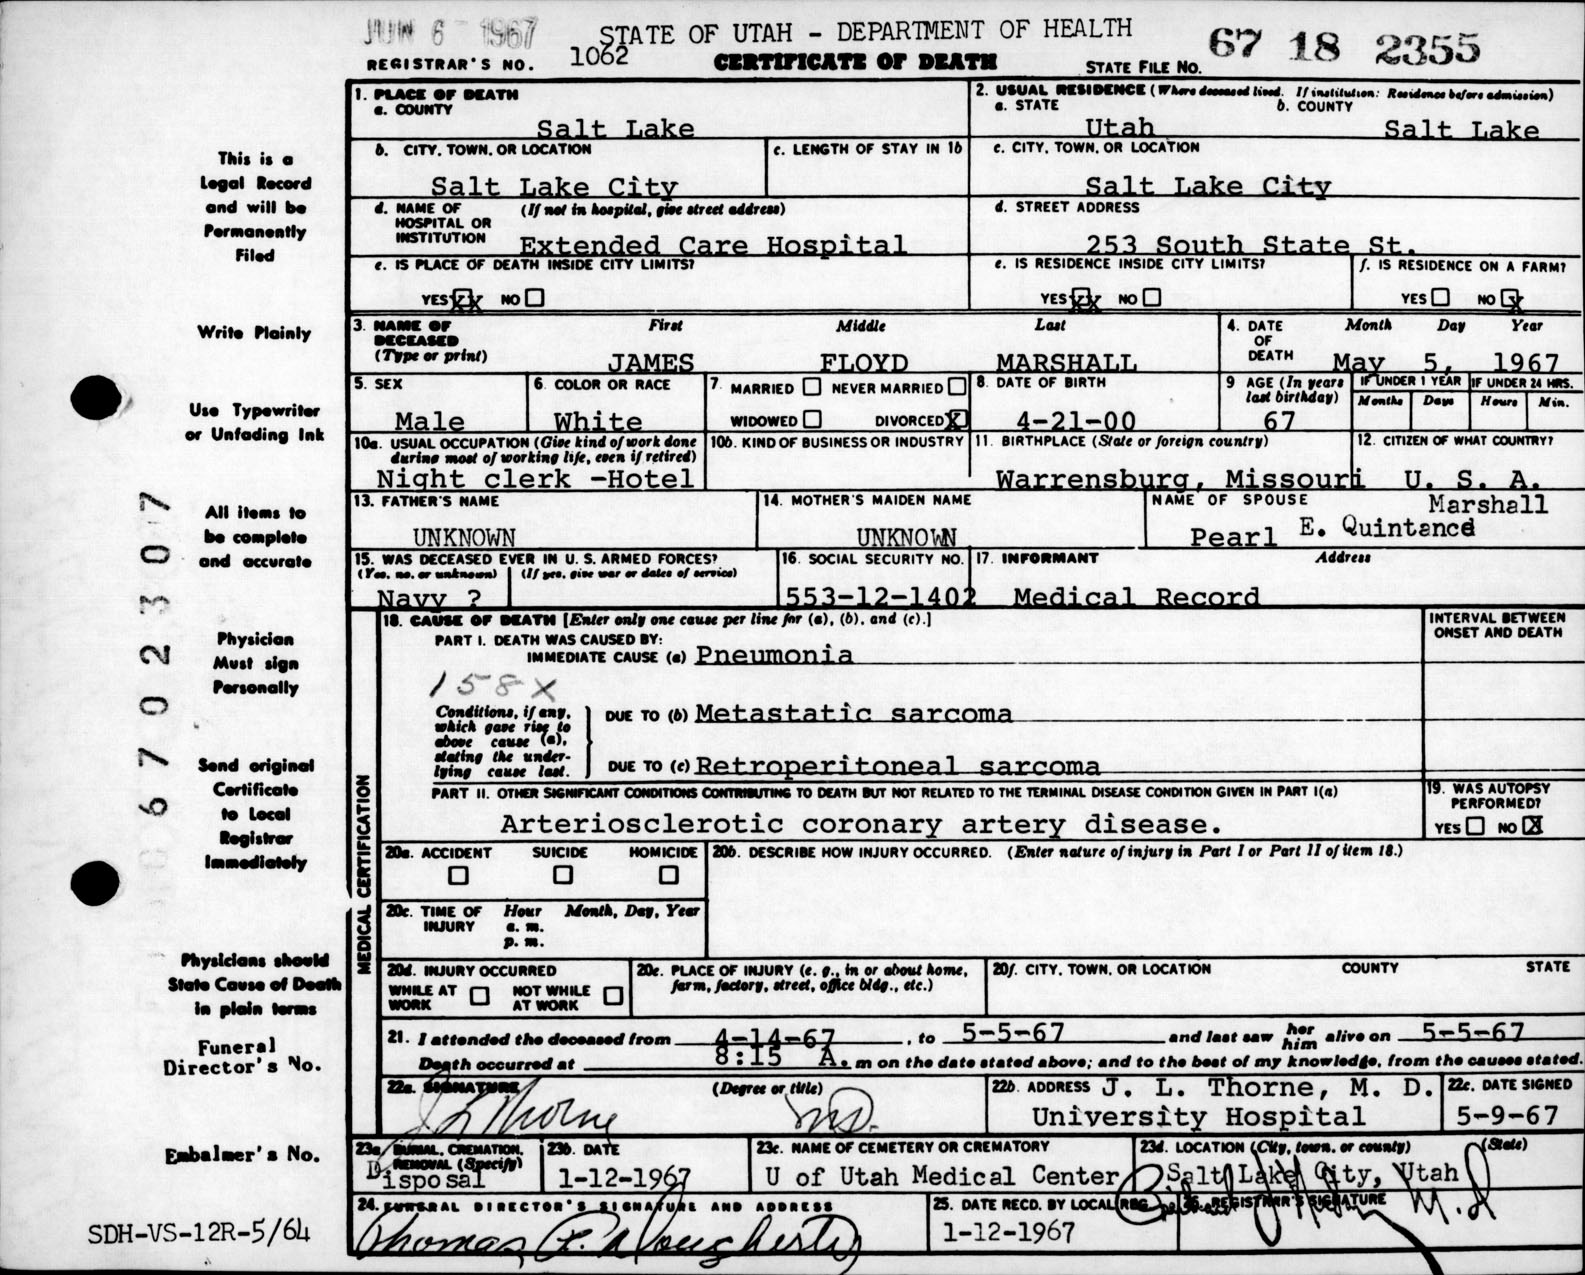 JUN 6 1967
STATE OF UTAH - DEPARTMENT OF HEALTH
REGISTRAR'S NO. 1062
CERTIFICATE OF DEATH
STATE FILE NO. 67 18 2355
This is a
Legal Record
and will be
Permanently
Filed
Write Plainly
Use Typewriter
or Unfading Ink
All items to
be complete
and accurate
Physician
Must sign
Personally
Send original
Certificate
to Local
Registrar
Immediately
Physicians should
State Cause of Death
in plain terms
Funeral
Director's No.
Embalmer's No.
SDH-VS-12R-5/64
6702307
1. PLACE OF DEATH
a. COUNTY
Salt Lake
2. USUAL RESIDENCE (Where deceased lived. If institution: Residence before admission)
a. STATE b. COUNTY
Utah Salt Lake
b. CITY, TOWN, OR LOCATION
Salt Lake City
c. LENGTH OF STAY IN 1b
c. CITY, TOWN, OR LOCATION
Salt Lake City
d. NAME OF (If not in hospital, give street address)
HOSPITAL OR
INSTITUTION Extended Care Hospital
d. STREET ADDRESS
253 South State St.
e. IS PLACE OF DEATH INSIDE CITY LIMITS?
YES XX NO
e. IS RESIDENCE INSIDE CITY LIMITS?
YES XX NO
f. IS RESIDENCE ON A FARM?
YES NO X
3. NAME OF First Middle Last
DECEASED
(Type or print) JAMES FLOYD MARSHALL
4. DATE Month Day Year
OF
DEATH May 5, 1967
5. SEX
Male
6. COLOR OR RACE
White
7. MARRIED NEVER MARRIED
WIDOWED DIVORCED X
8. DATE OF BIRTH
4-21-00
9 AGE (In years
last birthday)
67
IF UNDER 1 YEAR
Months Days
IF UNDER 24 HRS.
Hours Min.
10a. USUAL OCCUPATION (Give kind of work done
during most of working life, even if retired)
Night clerk -Hotel
10b. KIND OF BUSINESS OR INDUSTRY
11. BIRTHPLACE (State or foreign country)
Warrensburg, Missouri
12. CITIZEN OF WHAT COUNTRY?
U. S. A.
13. FATHER'S NAME
UNKNOWN
14. MOTHER'S MAIDEN NAME
UNKNOWN
NAME OF SPOUSE Marshall
Pearl E. Quintance
15. WAS DECEASED EVER IN U. S. ARMED FORCES?
(Yes, no, or unknown) (If yes, give war or dates of service)
Navy ?
16. SOCIAL SECURITY NO.
553-12-1402
17. INFORMANT Address
Medical Record
MEDICAL CERTIFICATION
18. CAUSE OF DEATH [Enter only one cause per line for (a), (b), and (c).]
PART I. DEATH WAS CAUSED BY:
IMMEDIATE CAUSE (a) Pneumonia
158X
Conditions, if any,
which gave rise to
above cause (a),
stating the under-
lying cause last.
DUE TO (b) Metastatic sarcoma
DUE TO (c) Retroperitoneal sarcoma
INTERVAL BETWEEN
ONSET AND DEATH
PART II. OTHER SIGNIFICANT CONDITIONS CONTRIBUTING TO DEATH BUT NOT RELATED TO THE TERMINAL DISEASE CONDITION GIVEN IN PART I(a)
Arteriosclerotic coronary artery disease.
19. WAS AUTOPSY
PERFORMED?
YES NO X
20a. ACCIDENT SUICIDE HOMICIDE
20b. DESCRIBE HOW INJURY OCCURRED. (Enter nature of injury in Part I or Part II of item 18.)
20c. TIME OF Hour Month, Day, Year
INJURY a. m.
p. m.
20d. INJURY OCCURRED
WHILE AT NOT WHILE
WORK AT WORK
20e. PLACE OF INJURY (e. g., in or about home,
farm, factory, street, office bldg., etc.)
20f. CITY, TOWN, OR LOCATION COUNTY STATE
21. I attended the deceased from 4-14-67, to 5-5-67 and last saw her him alive on 5-5-67
Death occurred at 8:15 A. m on the date stated above; and to the best of my knowledge, from the causes stated.
22a. SIGNATURE (Degree or title)
J L Thorne MD.
22b. ADDRESS J. L. Thorne, M. D.
University Hospital
22c. DATE SIGNED
5-9-67
23a. BURIAL, CREMATION,
REMOVAL (Specify)
Disposal
23b. DATE
1-12-1967
23c. NAME OF CEMETERY OR CREMATORY
U of Utah Medical Center
23d. LOCATION (City, town, or county) (State)
Salt Lake City, Utah
24. FUNERAL DIRECTOR'S SIGNATURE AND ADDRESS
Thomas
25. DATE RECD. BY LOCAL REG.
1-12-1967
26. REGISTRAR'S SIGNATURE
M.D